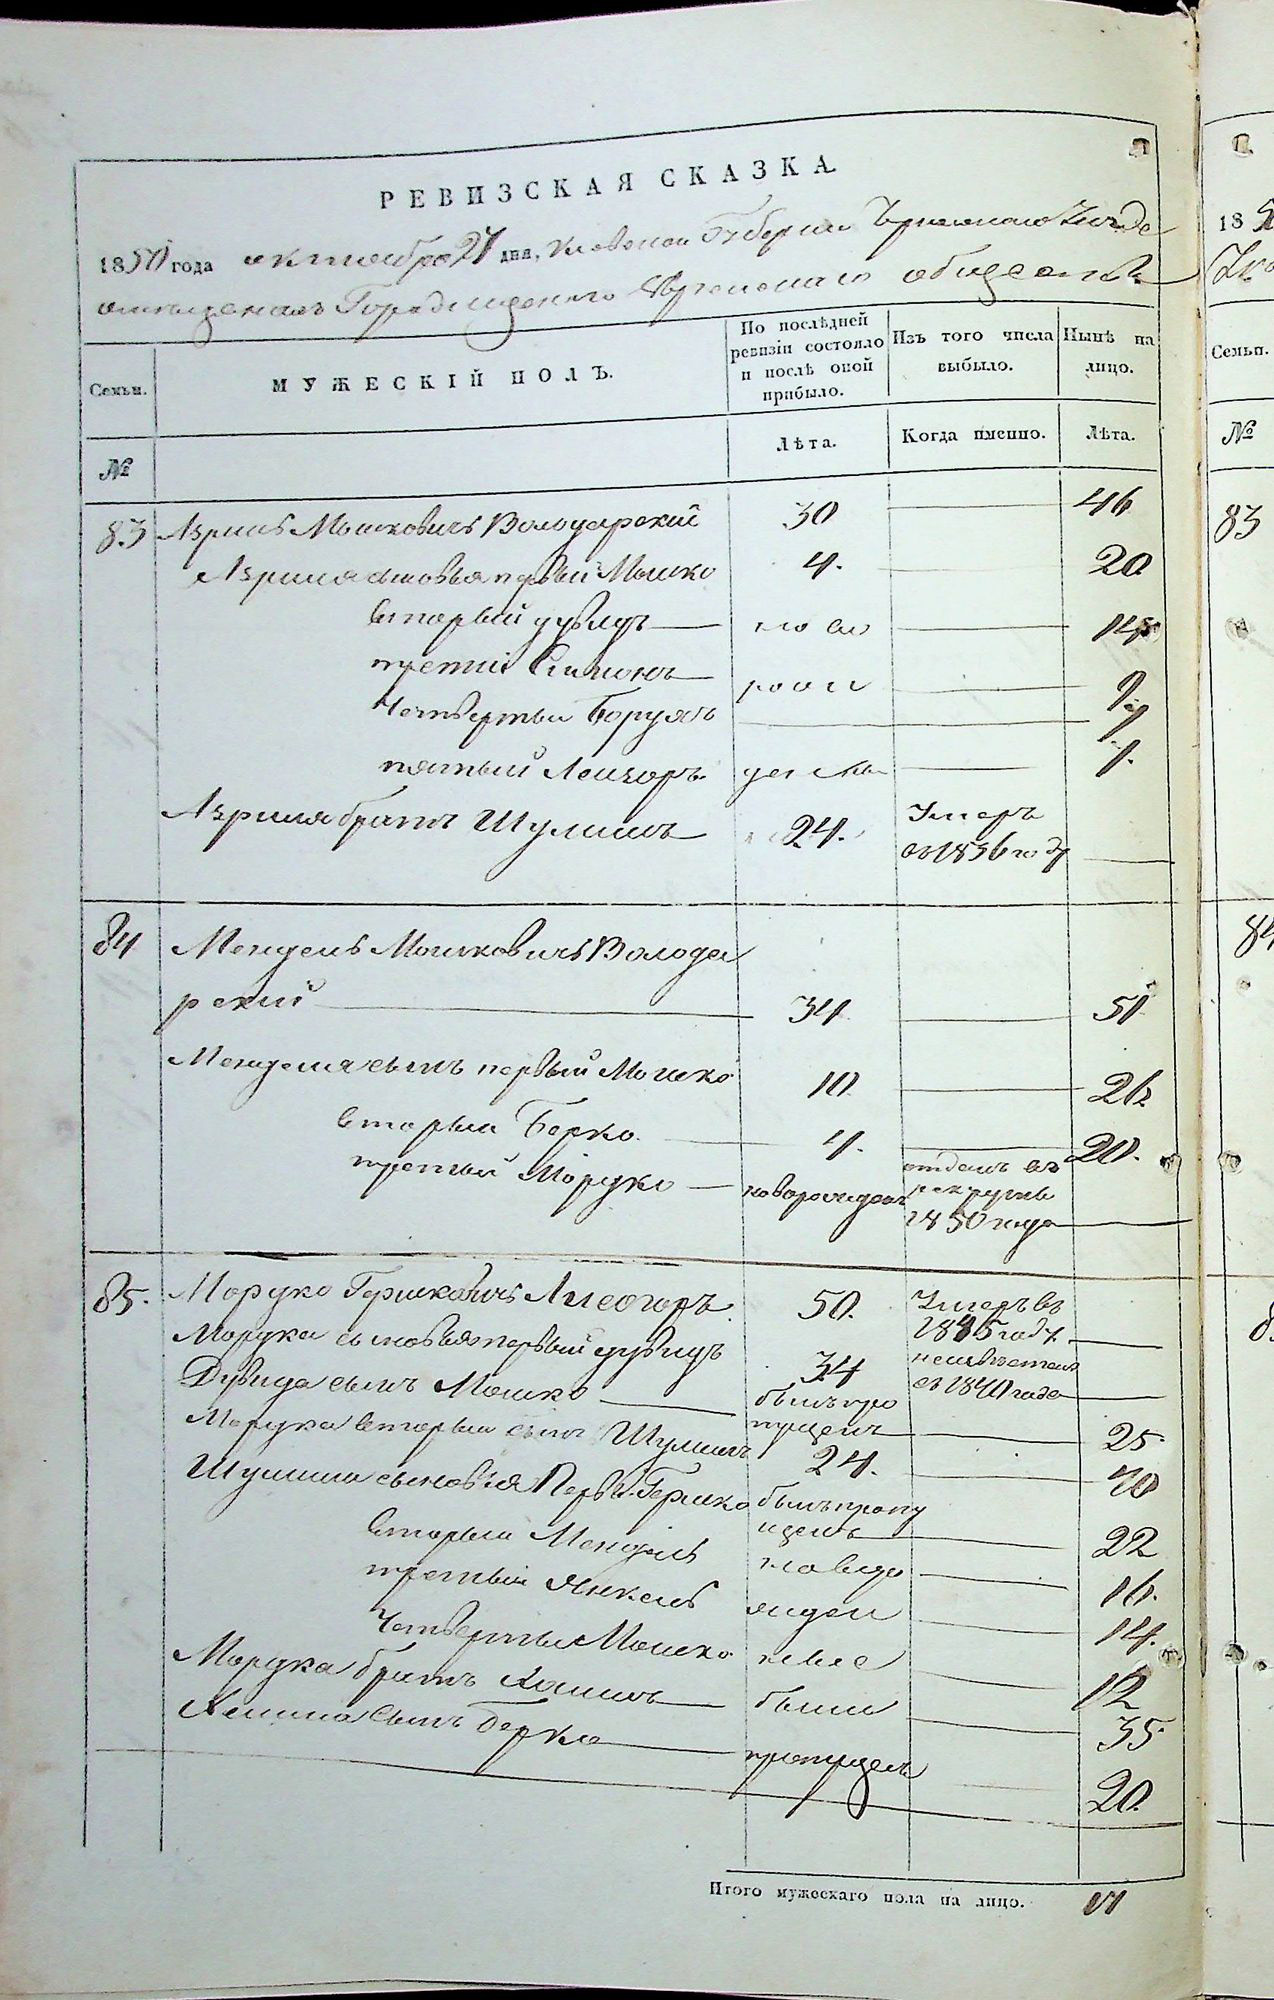 РЕВИЗСКАЯ СКАЗКА
1850 года октября 27 дня, Киевской Губернии Уезда
Городищенского Еврейского общества
Семьи.
МУЖЕСКІЙ ПОЛЪ.
По послѣдней ревизіи состояло и послѣ оной прибыло.
Изъ того числа выбыло.
Нынѣ на лицо.
№
Лѣта.
Когда именно.
Лѣта.
83 Азрилъ Мошковичъ Володарский 30 46
Азриля сыновья первый Мошко 4. 20
вторый Дувидъ ново 14
третий Симонъ рож 9
Четвертый Борухъ 7
пятый Лейзоръ 1.
Азриля братъ Шулимъ 24. Умеръ
въ 1836 году
84 Мендель Мошковичъ Волода
рский 34 51
Менделя сынъ первый Мошко 10 26
вторый Берко 4. 20.
третий Мордко новорожденъ отданъ въ
рекруты
1850 года
85. Мордко Гершковичъ Лисогоръ 50. Умеръ въ
1845 году
Мордка сыновья первый Дувидъ 34 неизвестенъ
съ 1840 года
Дувида сынъ Мошко былъ про
пущенъ 25
Мордка вторый сынъ Шулимъ 24. 40
Шулима сыновья Первы. Гершко былъ пропу
щенъ 22
вторый Мендель 16.
третий Янкель 14.
Четвертый Мошко 12
Мордка братъ Хаимъ были 35
Хаима сынъ Берко 20.
Итого мужескаго пола на лицо.
83
84
18
Семьи.
№